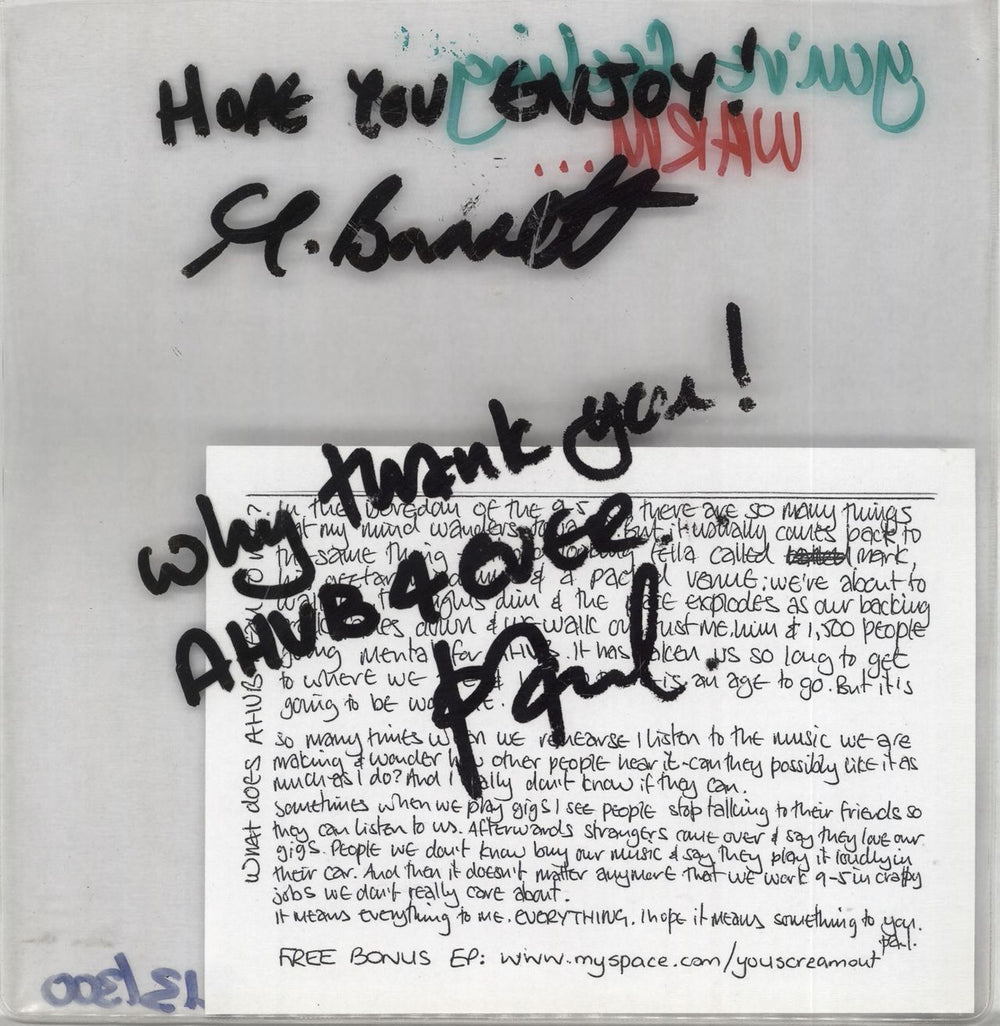 you're feeling
WARM...
HOPE YOU ENJOY!
M. Barrett
why thank you!
AHVB 4 OVER.
Paul.
WHAT DOES AHVB MEAN TO ME?
In the boredom of the 9-5 there are so many things
that my mind wanders but it usually comes back to
the same thing fella called mark,
his guitar & a packed venue: we've about to
lights dim & the place explodes as our backing
comes down & we walk on just me, him & 1,500 people
going mental for AHVB. It has taken us so long to get
to where we is an age to go. But it is
going to be
So many times when we rehearse I listen to the music we are
making & wonder how other people hear it-can they possibly like it as
much as I do? And I really don't know if they can.
Sometimes when we play gigs I see people stop talking to their friends so
they can listen to us. Afterwards strangers come over & say they love our
gigs. People we don't know buy our music & say they play it loudly in
their car. And then it doesn't matter anymore that we work 9-5 in crappy
jobs we don't really care about.
It means everything to me. EVERYTHING. I hope it means something to you.
paul.
FREE BONUS EP: www.myspace.com/youscreamout
13/300